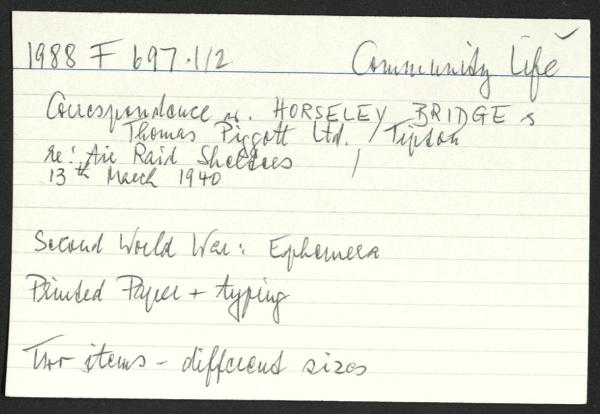 1988 F 697.1/2 Community Life ✓
Correspondence HORSELEY BRIDGE &
Thomas Piggott Ltd. / Tipton
re: Air Raid Shelters /
13th March 1940
Second World War: Ephemera
Printed Paper + typing
Two items - different sizes